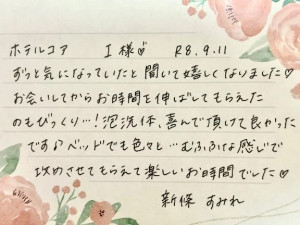 ホテルコア　I様♡　R8.9.11
ずっと気になっていたと聞いて嬉しくなりました♡
お会いしてからお時間を伸ばしてもらえた
のもびっくり…!泡洗体、喜んで頂けて良かった
ですがベッドでも色々と…むふふな感じで
攻めさせてもらえて楽しいお時間でした♡
新條 すみれ